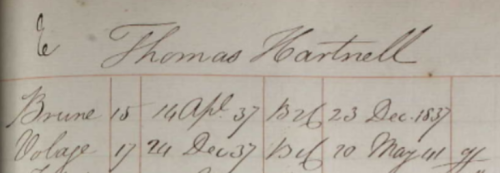 E Thomas Hartnell
Brune 15 14 Apl. 37 B2C 23 Dec. 1837
Volage 17 24 Dec 37 B1C 20 May 41